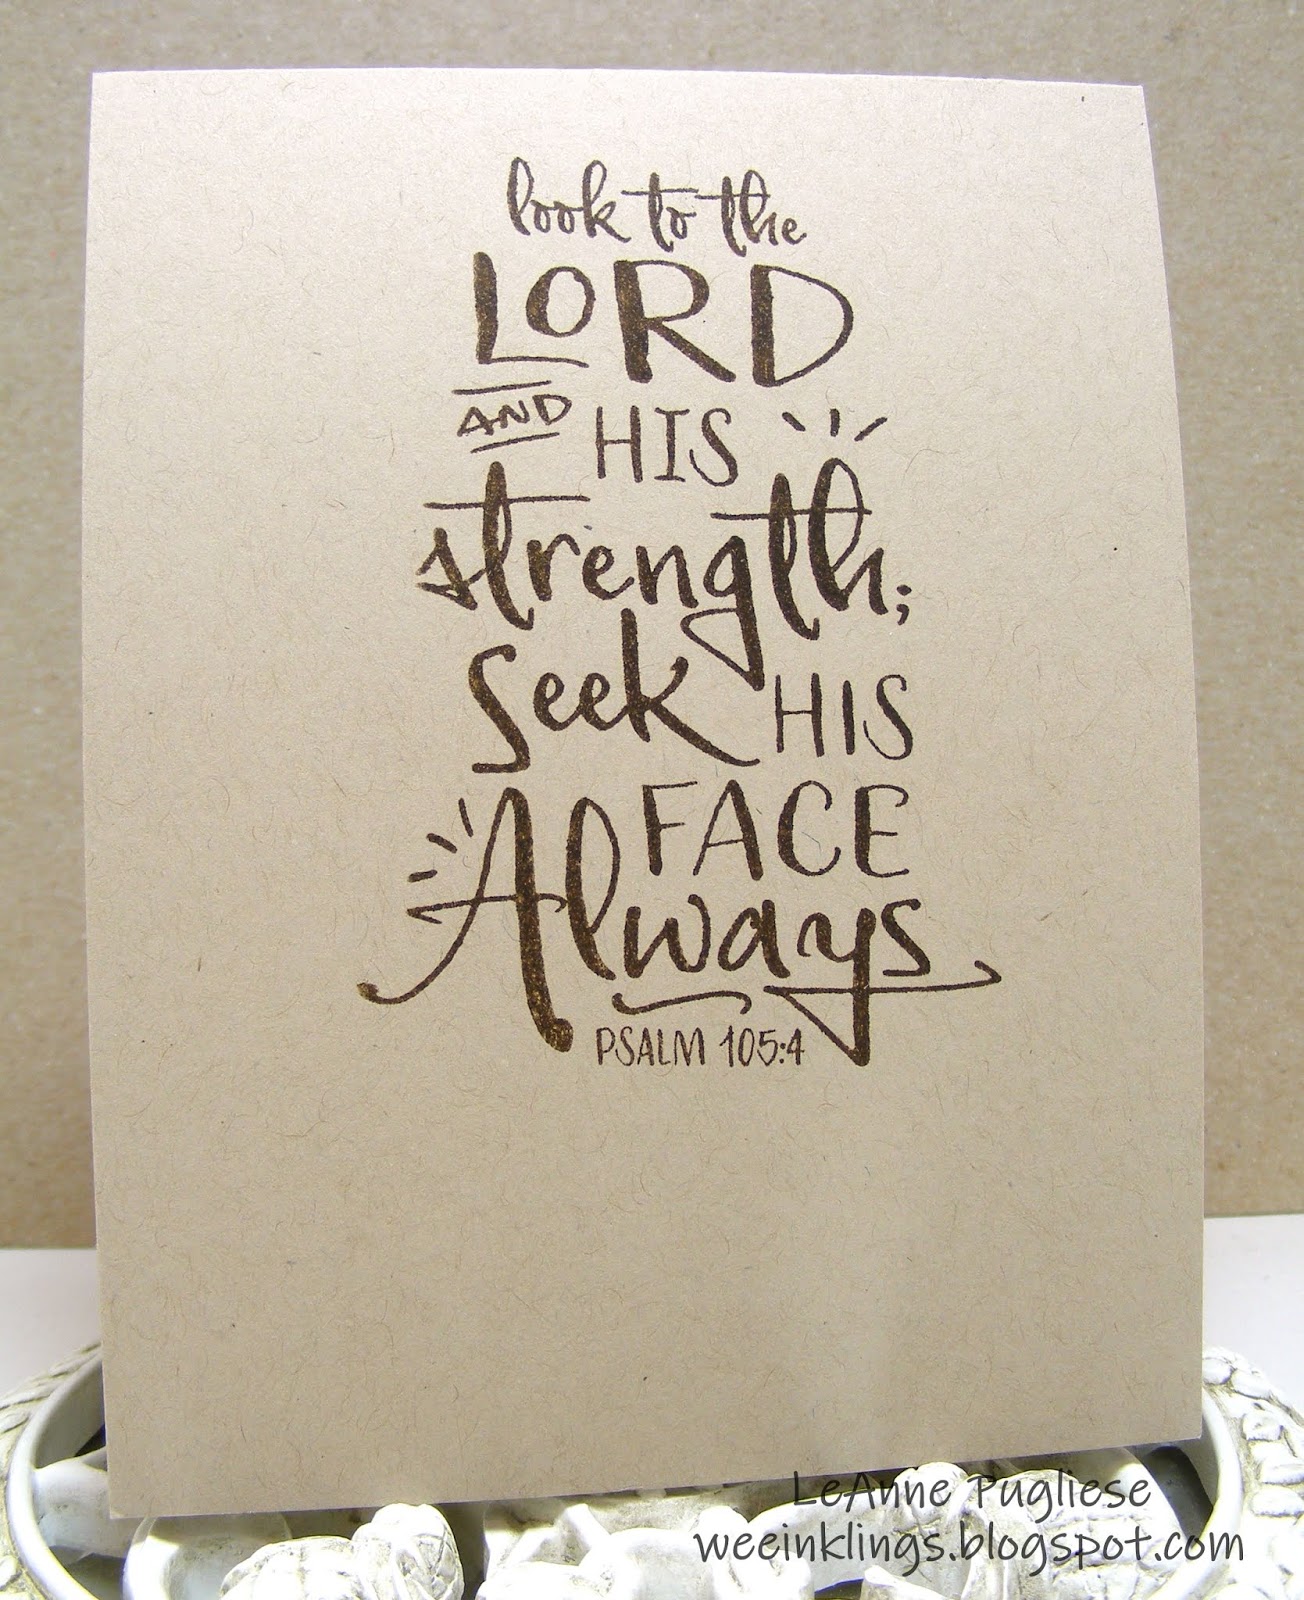 look to the
LORD
AND HIS
strength;
seek HIS
FACE
Always
PSALM 105:4
LeAnne Pugliese
weeinklings.blogspot.com